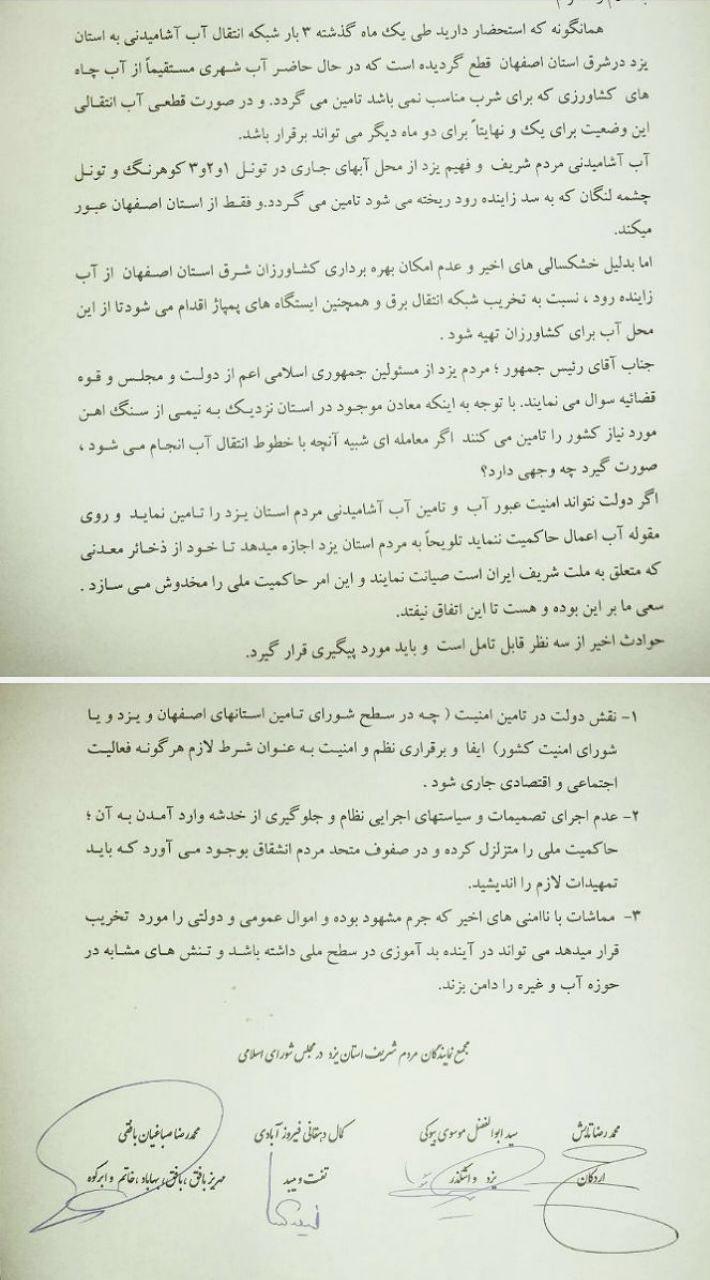 همانگونه که استحضار دارید طی یک ماه گذشته ۳ بار شبکه انتقال آب آشامیدنی به استان
یزد درشرق استان اصفهان قطع گردیده است که در حال حاضر آب شهری مستقیماً از آب چاه
های کشاورزی که برای شرب مناسب نمی باشد تامین می گردد. و در صورت قطعی آب انتقالی
این وضعیت برای یک و نهایتاً برای دو ماه دیگر می تواند برقرار باشد.
آب آشامیدنی مردم شریف و فهیم یزد از محل آبهای جاری در تونل ۱و۲و۳ کوهرنگ و تونل
چشمه لنگان که به سد زاینده رود ریخته می شود تامین می گردد.و فقط از استان اصفهان عبور
میکند.
اما بدلیل خشکسالی های اخیر و عدم امکان بهره برداری کشاورزان شرق استان اصفهان از آب
زاینده رود ، نسبت به تخریب شبکه انتقال برق و همچنین ایستگاه های پمپاژ اقدام می شودتا از این
محل آب برای کشاورزان تهیه شود .
جناب آقای رئیس جمهور ؛ مردم یزد از مسئولین جمهوری اسلامی اعم از دولت و مجلس و قوه
قضائیه سوال می نمایند. با توجه به اینکه معادن موجود در استان نزدیک به نیمی از سنگ اهن
مورد نیاز کشور را تامین می کنند اگر معامله ای شبیه آنچه با خطوط انتقال آب انجام می شود ،
صورت گیرد چه وجهی دارد؟
اگر دولت نتواند امنیت عبور آب و تامین آب آشامیدنی مردم استان یزد را تامین نماید و روی
مقوله آب اعمال حاکمیت ننماید تلویحاً به مردم استان یزد اجازه میدهد تا خود از ذخائر معدنی
که متعلق به ملت شریف ایران است صیانت نمایند و این امر حاکمیت ملی را مخدوش می سازد .
سعی ما بر این بوده و هست تا این اتفاق نیفتد.
حوادث اخیر از سه نظر قابل تامل است و باید مورد پیگیری قرار گیرد.
۱- نقش دولت در تامین امنیت ( چه در سطح شورای تامین استانهای اصفهان و یزد و یا
شورای امنیت کشور) ایفا و برقراری نظم و امنیت به عنوان شرط لازم هرگونه فعالیت
اجتماعی و اقتصادی جاری شود .
۲- عدم اجرای تصمیمات و سیاستهای اجرایی نظام و جلوگیری از خدشه وارد آمدن به آن ؛
حاکمیت ملی را متزلزل کرده و در صفوف متحد مردم انشقاق بوجود می آورد که باید
تمهیدات لازم را اندیشید.
۳- مماشات با ناامنی های اخیر که جرم مشهود بوده و اموال عمومی و دولتی را مورد تخریب
قرار میدهد می تواند در آینده بد آموزی در سطح ملی داشته باشد و تنش های مشابه در
حوزه آب و غیره را دامن بزند.
مجمع نمایندگان مردم شریف استان یزد در مجلس شورای اسلامی
محمد رضا تابش سید ابوالفضل موسوی بیوکی کمال دهقانی فیروز آبادی محمد رضا صباغیان بافقی
اردکان یزد و اشکذر تفت و میبد مهریز بافق ،بافق، بهاباد ،خاتم و ابرکوه